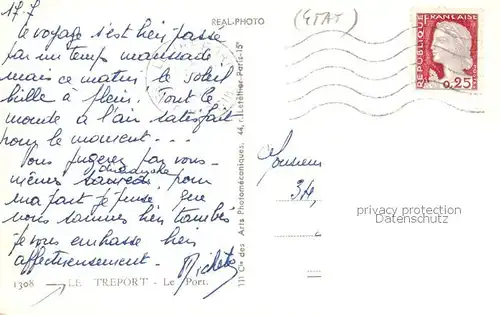 17-7
le voyage s'est bien passé
par un temps maussade
mais ce matin le soleil
brille à plein! Tout le
monde a l'air satisfait
pour le moment...
Vous jugerez par vous-
mêmes samedi, pour
ma part je pense que
nous sommes bien tombés
je vous embrasse bien
affectueusement.
1308 LE TREPORT - Le Port.
REAL-PHOTO
Cie des Arts Photomécaniques, 44, r. Letellier Paris-15e
(ETAT)
REPUBLIQUE FRANÇAISE
0,25
Monsieur
34,
privacy protection
Datenschutz